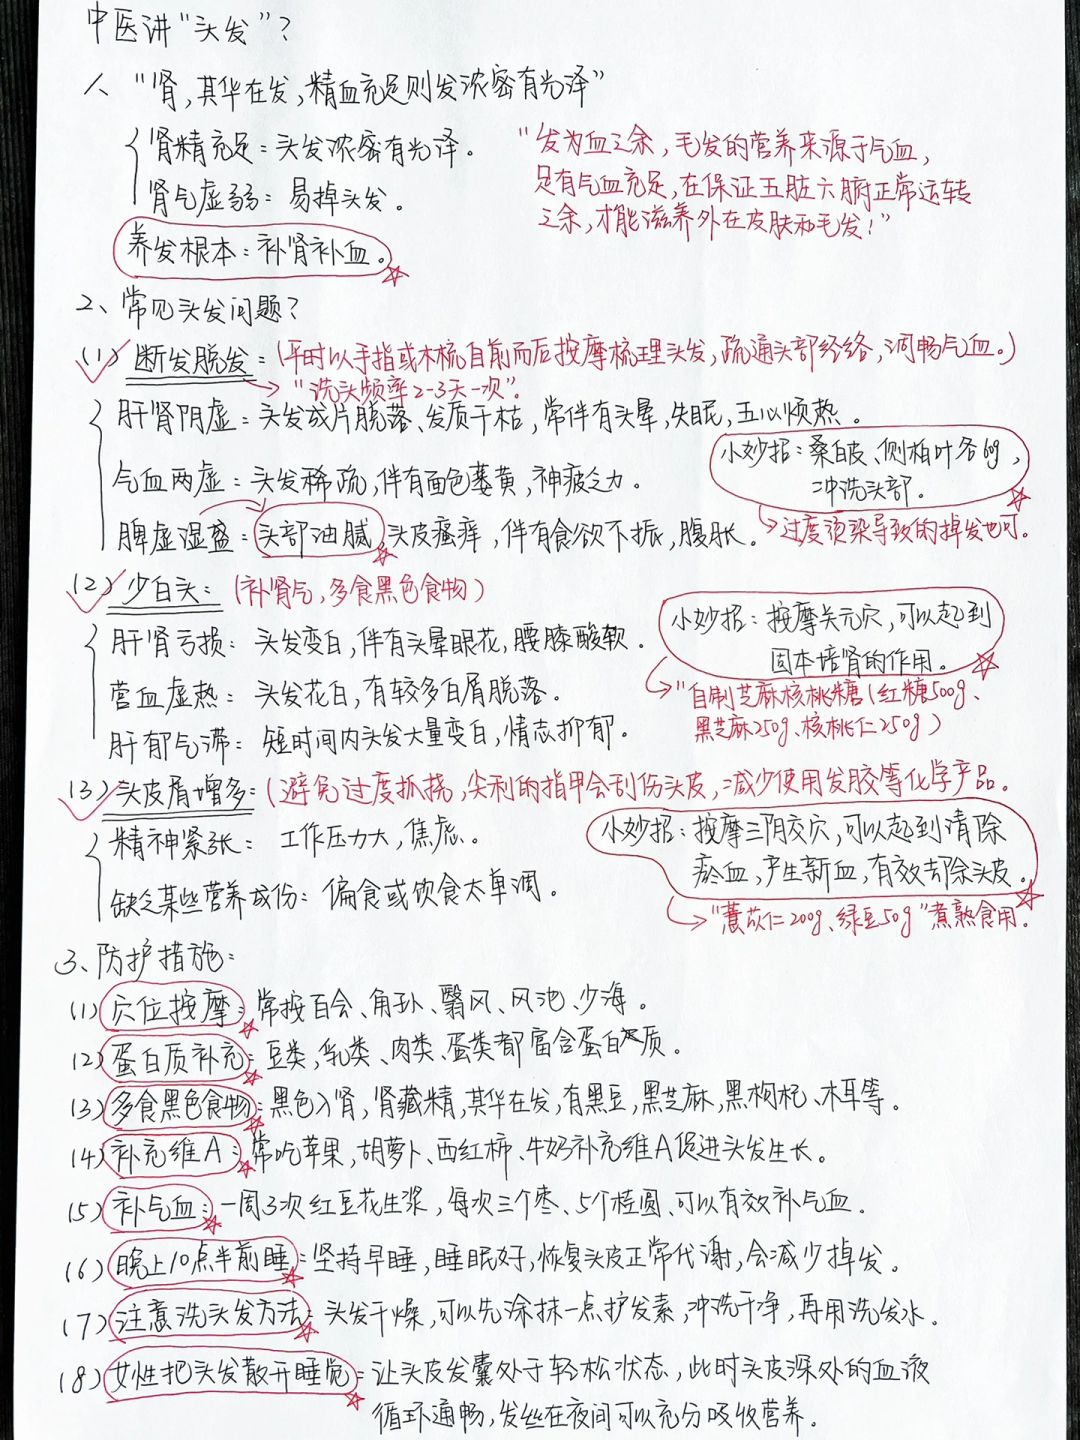 中医讲“头发”？
1、“肾，其华在发，精血充足则发浓密有光泽”
肾精充足：头发浓密有光泽。
肾气虚弱：易掉头发。
养发根本：补肾补血。
“发为血之余，毛发的营养来源于气血，
足有气血充足，在保证五脏六腑正常运转
之余，才能滋养外在皮肤和毛发！”
2、常见头发问题？
(1) 断发脱发：(平时以手指或木梳自前而后按摩梳理头发，疏通头部经络，调畅气血。)
“洗头频率2-3天一次”。
肝肾阴虚：头发成片脱落、发质干枯，常伴有头晕，失眠，五心烦热。
气血两虚：头发稀疏，伴有面色萎黄，神疲乏力。
脾虚湿盛：头部油腻，头皮瘙痒，伴有食欲不振，腹胀。
小妙招：桑白皮、侧柏叶各6g，
冲洗头部。
过度烫染导致的掉发也可。
(2) 少白头：(补肾气，多食黑色食物)
肝肾亏损：头发变白，伴有头晕眼花，腰膝酸软。
营血虚热：头发花白，有较多白屑脱落。
肝郁气滞：短时间内头发大量变白，情志抑郁。
小妙招：按摩关元穴，可以起到
固本培肾的作用。
“自制芝麻核桃糖(红糖500g、
黑芝麻250g、核桃仁250g)
(3) 头皮屑增多：(避免过度抓挠，尖利的指甲会刮伤头皮，减少使用发胶等化学产品。
精神紧张：工作压力大，焦虑。
缺乏某些营养成份：偏食或饮食太单调。
小妙招：按摩三阴交穴，可以起到清除
瘀血，产生新血，有效去除头皮。
“薏苡仁200g、绿豆50g”煮熟食用。
3、防护措施：
(1) 穴位按摩：常按百会、角孙、翳风、风池、少海。
(2) 蛋白质补充：豆类，乳类、肉类、蛋类都富含蛋白质。
(3) 多食黑色食物：黑色入肾，肾藏精，其华在发，有黑豆，黑芝麻，黑枸杞、木耳等。
(4) 补充维A：常吃苹果，胡萝卜、西红柿、牛奶补充维A促进头发生长。
(5) 补气血：一周3次红豆花生浆，每次三个枣、5个桂圆、可以有效补气血.
(6) 晚上10点半前睡：坚持早睡，睡眠好，恢复头皮正常代谢，会减少掉发。
(7) 注意洗头发方法：头发干燥，可以先涂抹一点护发素，冲洗干净，再用洗发水。
(8) 女性把头发散开睡觉：让头皮发囊处于轻松状态，此时头皮深处的血液
循环通畅，发丝在夜间可以充分吸收营养。